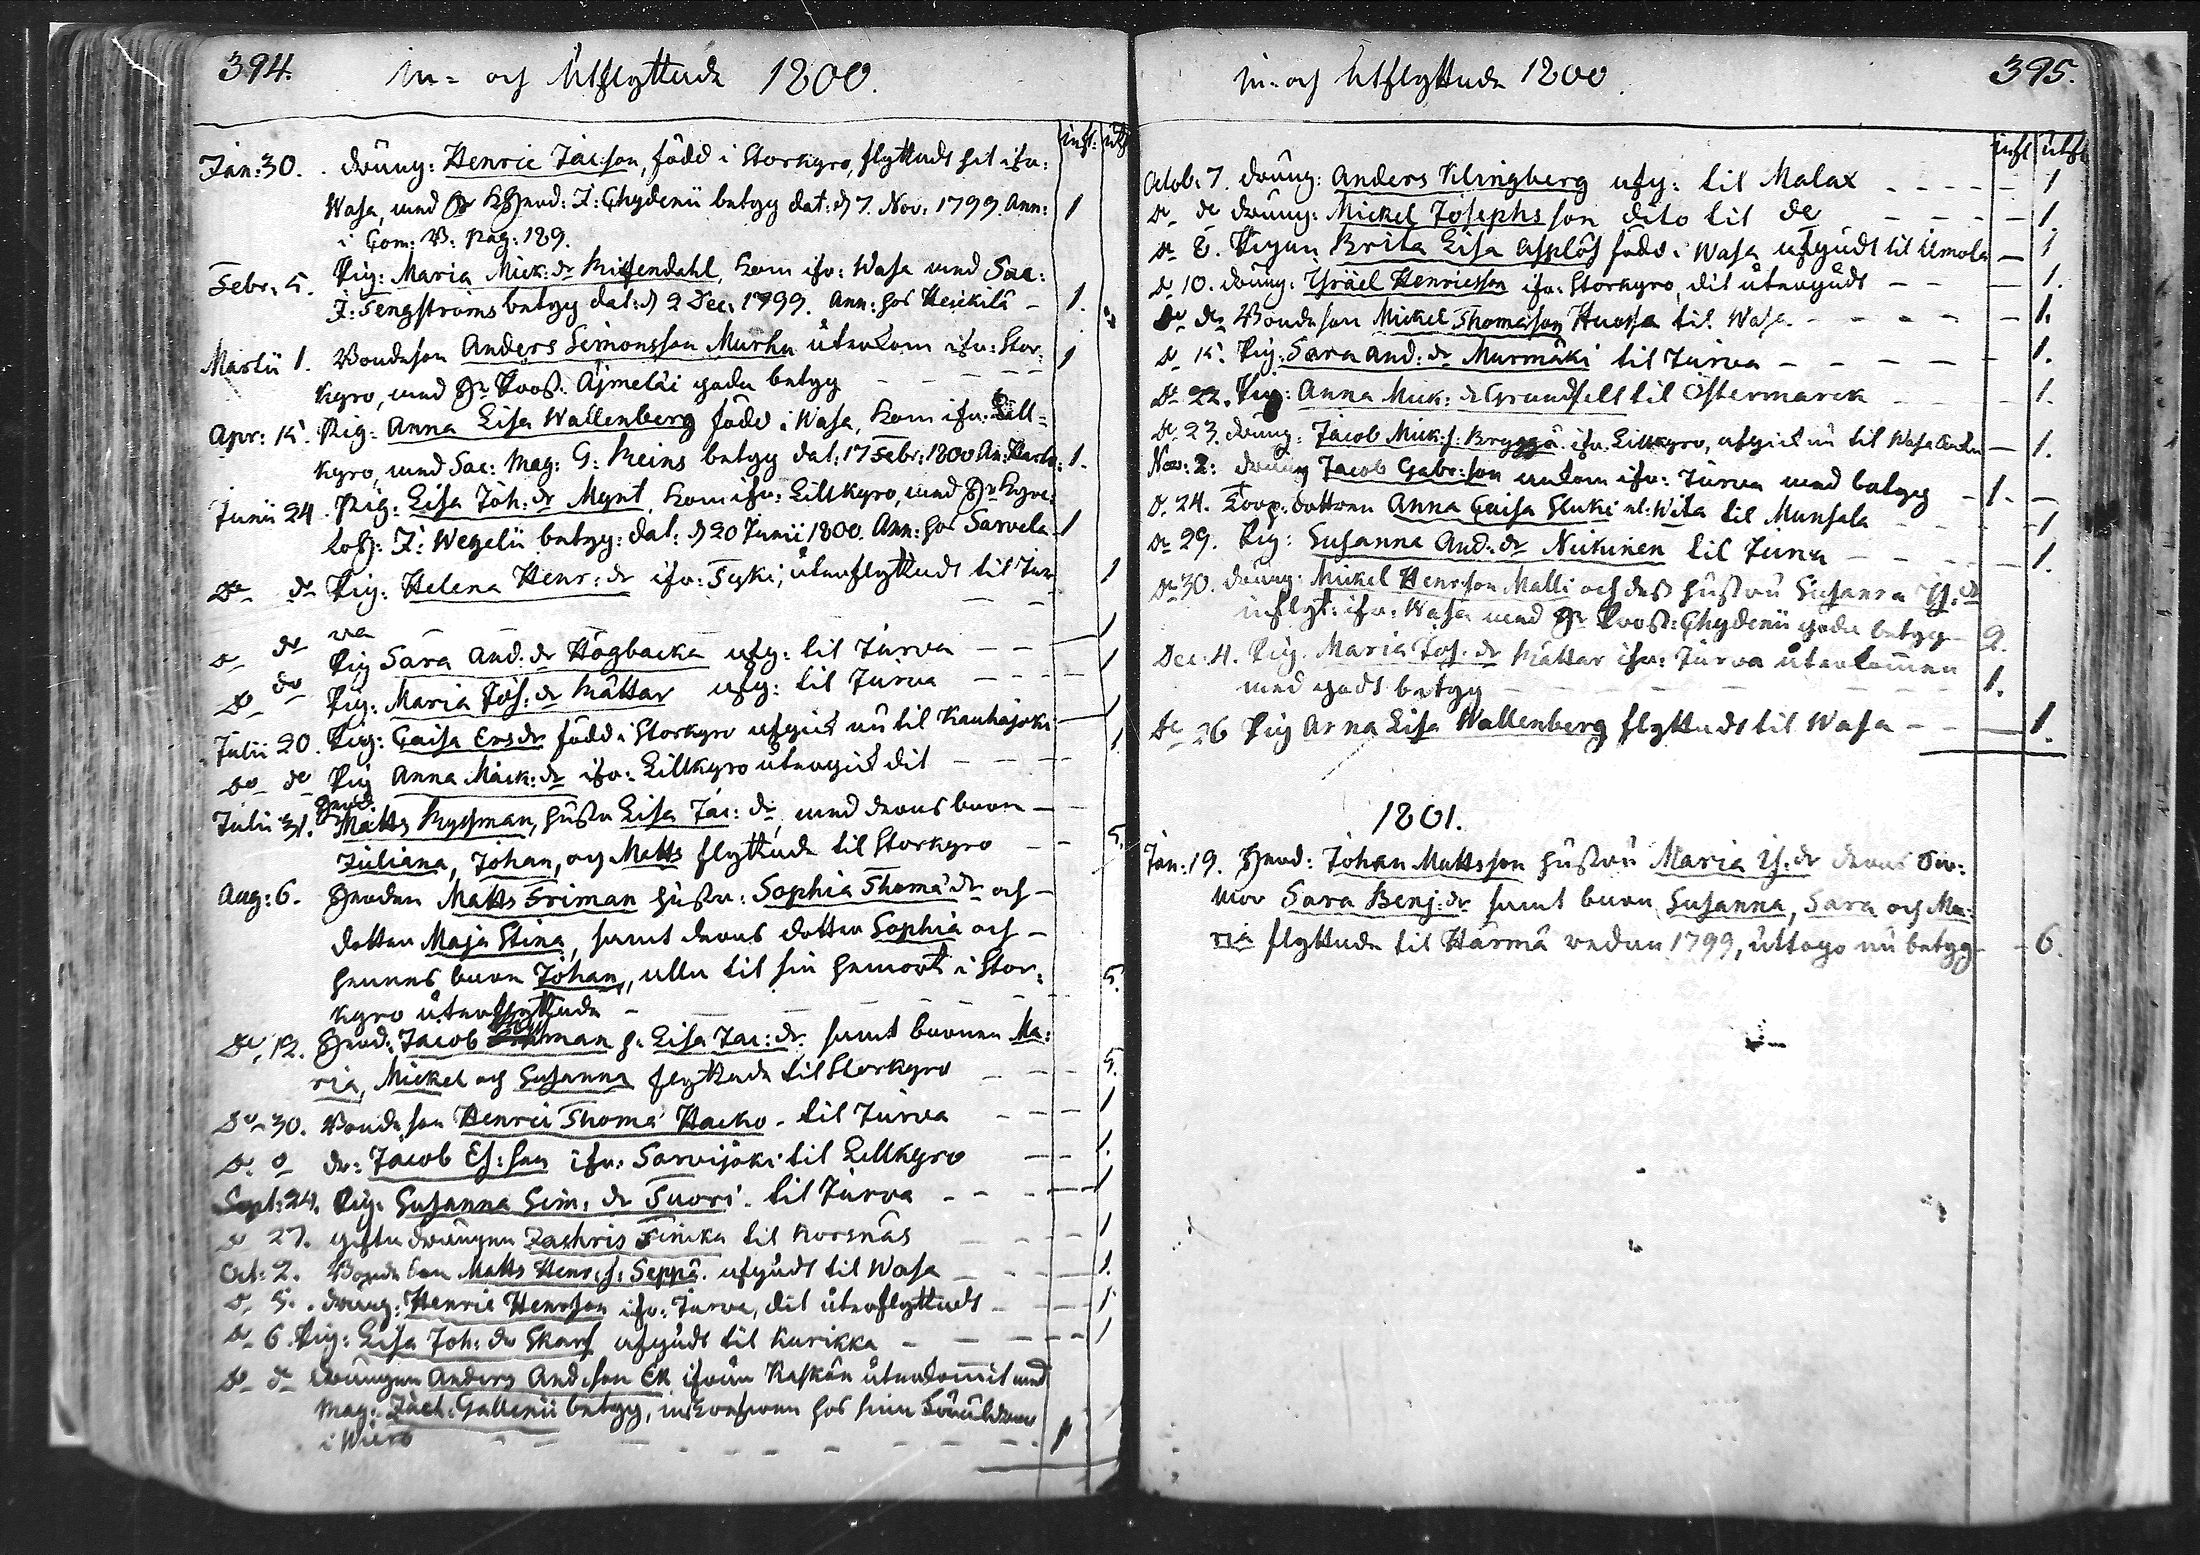 394.
In- och Utflyttade 1800.
infl: utfl
Jan: 30. dräng: Henric Jac:son, född i Storkyro, flyttadt hit ifr:
Wasa, med J: Chydenii betyg dat: d 7. Nov: 1799. Ann: 1
i Com: B: Pag: 189.
Febr: 5. Pig: Maria Mick: dr kom ifr: Wasa med Sac:
J: Tengströms betyg dat: d 9 Dec: 1799. Ann: hos Heickilä – 1.
Martii 1. Bondeson Anders Simonsson Murhu återkom ifr: Stor- 1
kyro, med Hr Prost. Äjmeläi goda betyg – – – –
Apr: 15. Pig: Anna Lisa Wallenberg född i Wasa, kom ifr: Lill-
kyro, med Sac: Mag: G: betyg dat: 17 Febr: 1800 An: 1.
Junii 24. Pig: Lisa Joh: dr Mynt, kom ifr: Lillkyro, med Hr
J: Wegelii betyg: dat: d 20 Junii 1800. Ann: hos Sarvela 1
Do do Pig: Helena Henr: dr ifr: återflyttadt til Jur- 1
va
Do do Pig Sara And: dr Högbacka afg: til Jurva – – 1
Do do Pig: Maria Jos: dr Mättar afg: til Jurva – – – 1
Julii 20. Pig: Caisa Ersdr född i Storkyro afgick nu til Kauhajoki – 1
Do do Pig Anna Mick: dr ifr: Lillkyro återgick dit – – – 1
Julii 31. Matts hustr Lisa Jac: dr, med deras barn –
Juliana, Johan, och Matts flyttade til Storkyro – – 5.
Aug: 6. Matts Friman hustr: Sophia Thoma dr och –
dotter Maja Stina, samt deras dotter Sophia och –
hennes barn Johan, alla til sin hemort i Stor-
kyro återflyttade – – – – 5.
Do 12. Jacob h. Lisa Jac: dr. samt barnen Ma-
ria, Mickel och Susanna flyttade til Storkyro – – 5.
Do 30. Bondeson Henric Thoma Hacko – til Jurva – – – 1
Do do dr: Jacob Es:son ifr: Sarvijoki til Lillkyro – – 1.
Sept: 24. Pig: Susanna Sim: dr Suori. til Jurva – – – 1
Do 27. gifta drängen Zachris Finika til Korsnäs – – – 1
Oct: 2. Bondeson Matts Henr: s: Seppä. afgådt til Wasa – – 1.
Do 5. dräng: Henric Henrsson ifr: Jurva, dit återflyttadt – – 1.
Do 6. Pig: Lisa Joh: dr Skarf afgådt til Kurikka – – – 1
Do do Drängen Anders And:son Ek ifrån Kaskön återkommit med
Mag: Zach: Gallenii betyg, hos sine föräldrar
i – – – – – 1

395.
In- och Utflyttade 1800.
infl utfl
Octob: 7. dräng: Anders Klingberg afg: til Malax – – – – – 1
Do do dräng: Mickel Josephsson dito til do – – – – 1.
Do 8. Pigan Brita Lisa Asplöf född i Wasa afgådt til Ilmola – 1
Do 10. dräng: Israël Henricsson ifr: Storkyro, dit återgådt – – – 1.
Do do Bondeson Mickel Thomasson Huossa til Wasa – – – – – 1.
Do 15. Pig: Sara And: dr Murmäki til Jurva – – – – – 1.
Do 22. Pig: Anna Mick: dr Grundfelt til Östermarck – – – 1.
Do 23. dräng: Jacob Mick: s: Bryggä ifr: Lillkyro, afgick nu til Wasa – 1.
Nov: 2: dräng Jacob Gabr:son ankom ifr: Jurva med betyg – 1. –
Do 24. dottren Anna Caisa Gluki al: Wita til Munsala – – – 1
Do 29. Pig: Susanna And: dr Niikinen til Jurva – – – – 1.
Do 30. dräng: Mickel Henrsson Malli och dess hustru Susanna dr
inflytt: ifr: Wasa med Hr Prost: Chydenii goda betyg – 2.
Dec: 4. Pig. Maria Jos: dr Mättar ifr: Jurva återkommen
med godt betyg – – – – 1.
Do 26 Pig Anna Lisa Wallenberg flyttadt til Wasa – – – 1.
1801.
Jan: 19. Johan Mattsson hustru Maria Is: dr deras
mor Sara Benj: dr samt barn Susanna, Sara och Ma-
ria flyttade til Härmä redan 1799, uttogo nu betyg – 6.